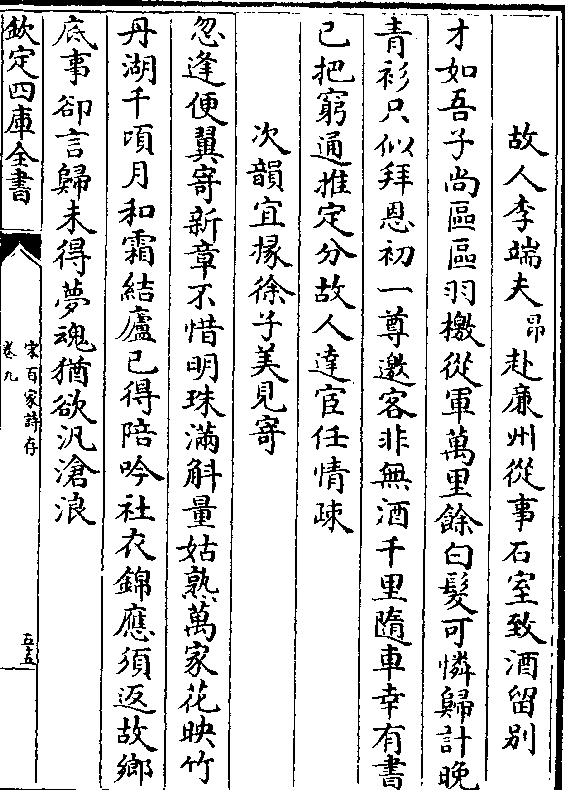 故人李端夫昂赴廉州從事石室致酒留别
才如吾子尚區區羽檄從軍萬里餘白髮可憐歸計晚
青衫只似拜恩初一尊邀客非無酒千里隨車幸有書
已把窮通推定分故人達宦任情疎
次韻宜掾徐子美見寄
忽逢便翼寄新章不惜明珠滿斛量姑熟萬家花映竹
丹湖千頃月和霜結廬已得陪吟社衣錦應須返故鄉
底事卻言歸未得夢魂猶欲汎滄浪
欽定四庫全書
宋百家詩存
卷九
五五